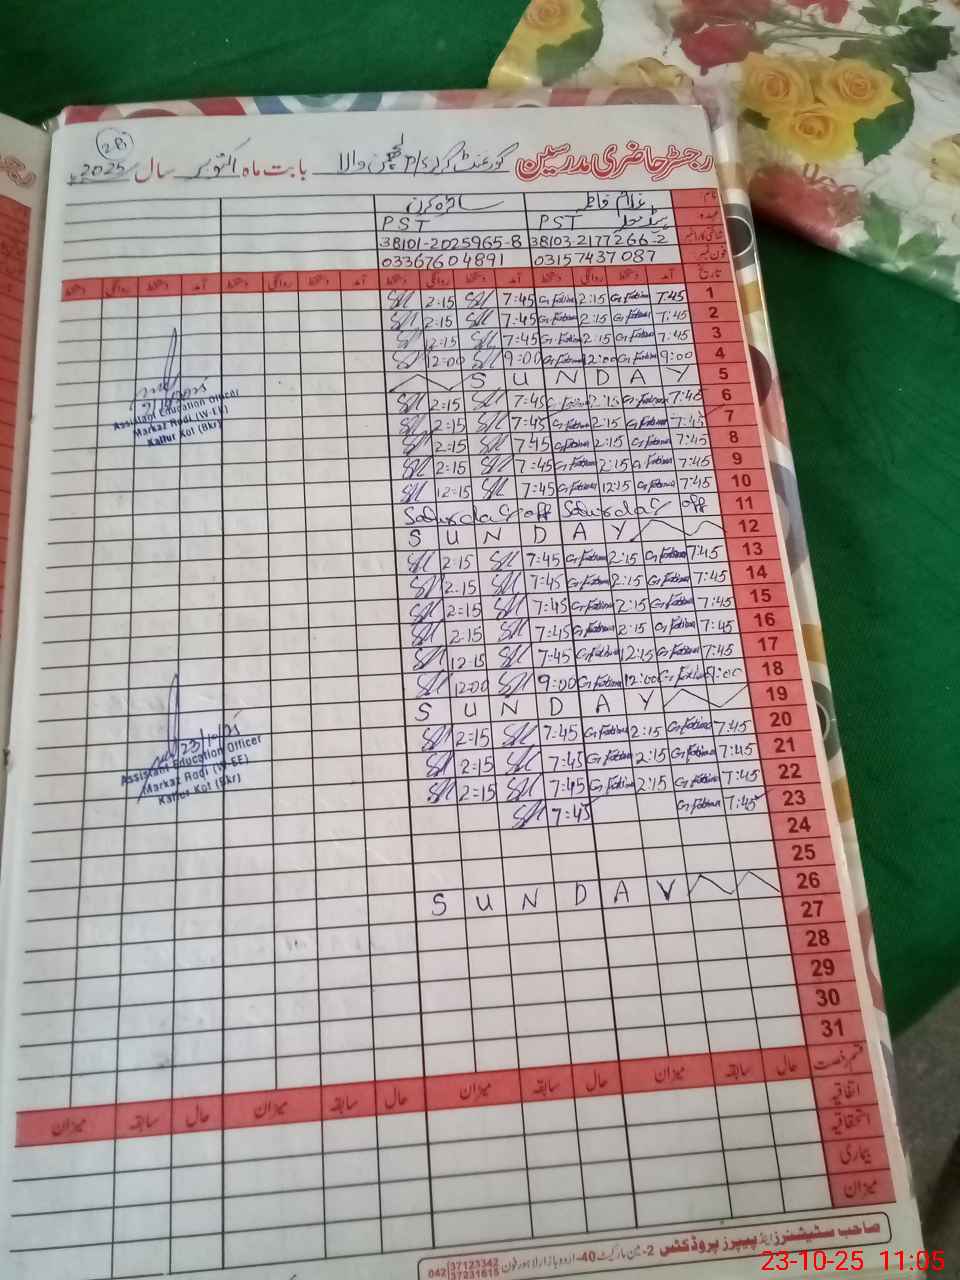 2Bi
رجسٹر حاضری مدرسین گورنمنٹ گرلز P/S والا بابت ماہ اکتوبر سال 2025ء
نام غلام فاطمہ سائرہ کرن
عہدہ PST ہیڈ ٹیچر PST
شناختی کارڈ نمبر 38103-2177266-2 38101-2025965-8
فون نمبر 03157437087 03367604891
تاریخ آمد دستخط روانگی دستخط آمد دستخط روانگی دستخط آمد دستخط روانگی دستخط آمد دستخط روانگی دستخط
1 7:45 G.Fatima 2:15 G.Fatima 7:45 2:15
2 7:45 G.Fatima 2:15 G.Fatima 7:45 2:15
3 7:45 G.Fatima 2:15 G.Fatima 7:45 2:15
4 9:00 G.Fatima 12:00 G.Fatima 9:00 12:00
5 SUNDAY
6 7:45 G.Fatima 2:15 G.Fatima 7:45 2:15
7 7:45 G.Fatima 2:15 G.Fatima 7:45 2:15
8 7:45 G.Fatima 2:15 G.Fatima 7:45 2:15
9 7:45 G.Fatima 2:15 G.Fatima 7:45 2:15
10 7:45 G.Fatima 12:15 G.Fatima 7:45 12:15
11 Saturday off Saturday off
12 SUNDAY
13 7:45 G.Fatima 2:15 G.Fatima 7:45 2:15
14 7:45 G.Fatima 2:15 G.Fatima 7:45 2:15
15 7:45 G.Fatima 2:15 G.Fatima 7:45 2:15
16 7:45 G.Fatima 2:15 G.Fatima 7:45 2:15
17 7:45 G.Fatima 12:15 G.Fatima 7:45 12:15
18 9:00 G.Fatima 12:00 G.Fatima 9:00 12:00
19 SUNDAY
20 7:45 G.Fatima 2:15 G.Fatima 7:45 2:15
21 7:45 G.Fatima 2:15 G.Fatima 7:45 2:15
22 7:45 G.Fatima 2:15 G.Fatima 7:45 2:15
23 7:45 G.Fatima 7:45
24
25
26 SUNDAY
27
28
29
30
31
Assistant Education Officer
Markaz Rodi (W-EE)
Kallur Kot (Bkr)
23/10/25
Assistant Education Officer
Markaz Rodi (W-EE)
Kallur Kot (Bkr)
قسم رخصت حال سابقہ میزان حال سابقہ میزان حال سابقہ میزان حال سابقہ میزان
اتفاقیہ
استحقاقیہ
بیماری
میزان
صاحب سٹیشنرز اینڈ پیپرز پروڈکٹس 2-مین مارکیٹ 40-اردو بازار لاہور فون 042 37123342 37231615
23-10-25 11:05